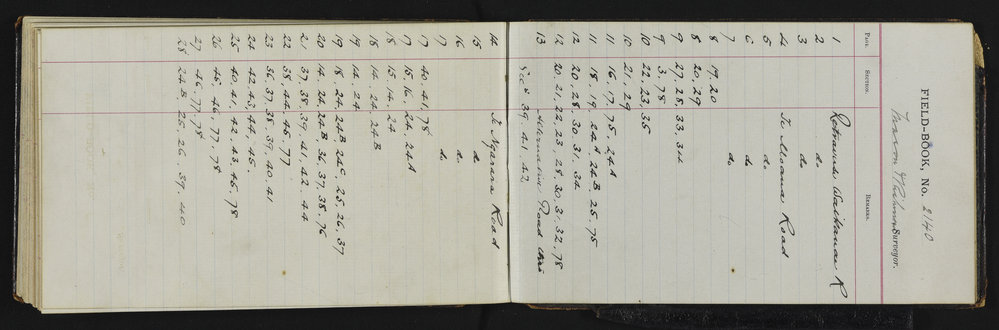 FIELD-BOOK, No. 2140
Surveyor.
PAGE. SECTION. REMARKS.
1 Waikanae R
2 do
3 do
4 Te Moana Road
5 do
6 do
7 do
8 19.20
8 20.29
9 27.28.33.34
9 3.78
10 22.23.35
10 21.29
11 16.17.75.24A
11 18.19.24A.24B.25.75
12 20.28.30.31.34
12 20.21.22.23.28.30.31.32.78
Road
13 Sec 39.41.42
14 Te Ngarara Road
15 do
16 do
17 do
17 40.41.78
17 15.16.24.24A
18 15.14.24
18 14.24.24B
19 14.24
19 18.24.24B.24C.25.26.37
20 14.24.24B.36.37.38.76
21 37.38.39.41.42.44
22 38.44.45.77
23 36.37.38.39.40.41
24 42.43.44.45.
25 40.41.42.43.45.78
26 45.46.77.78
27 46.77.78
28 24B.25.26.39.40